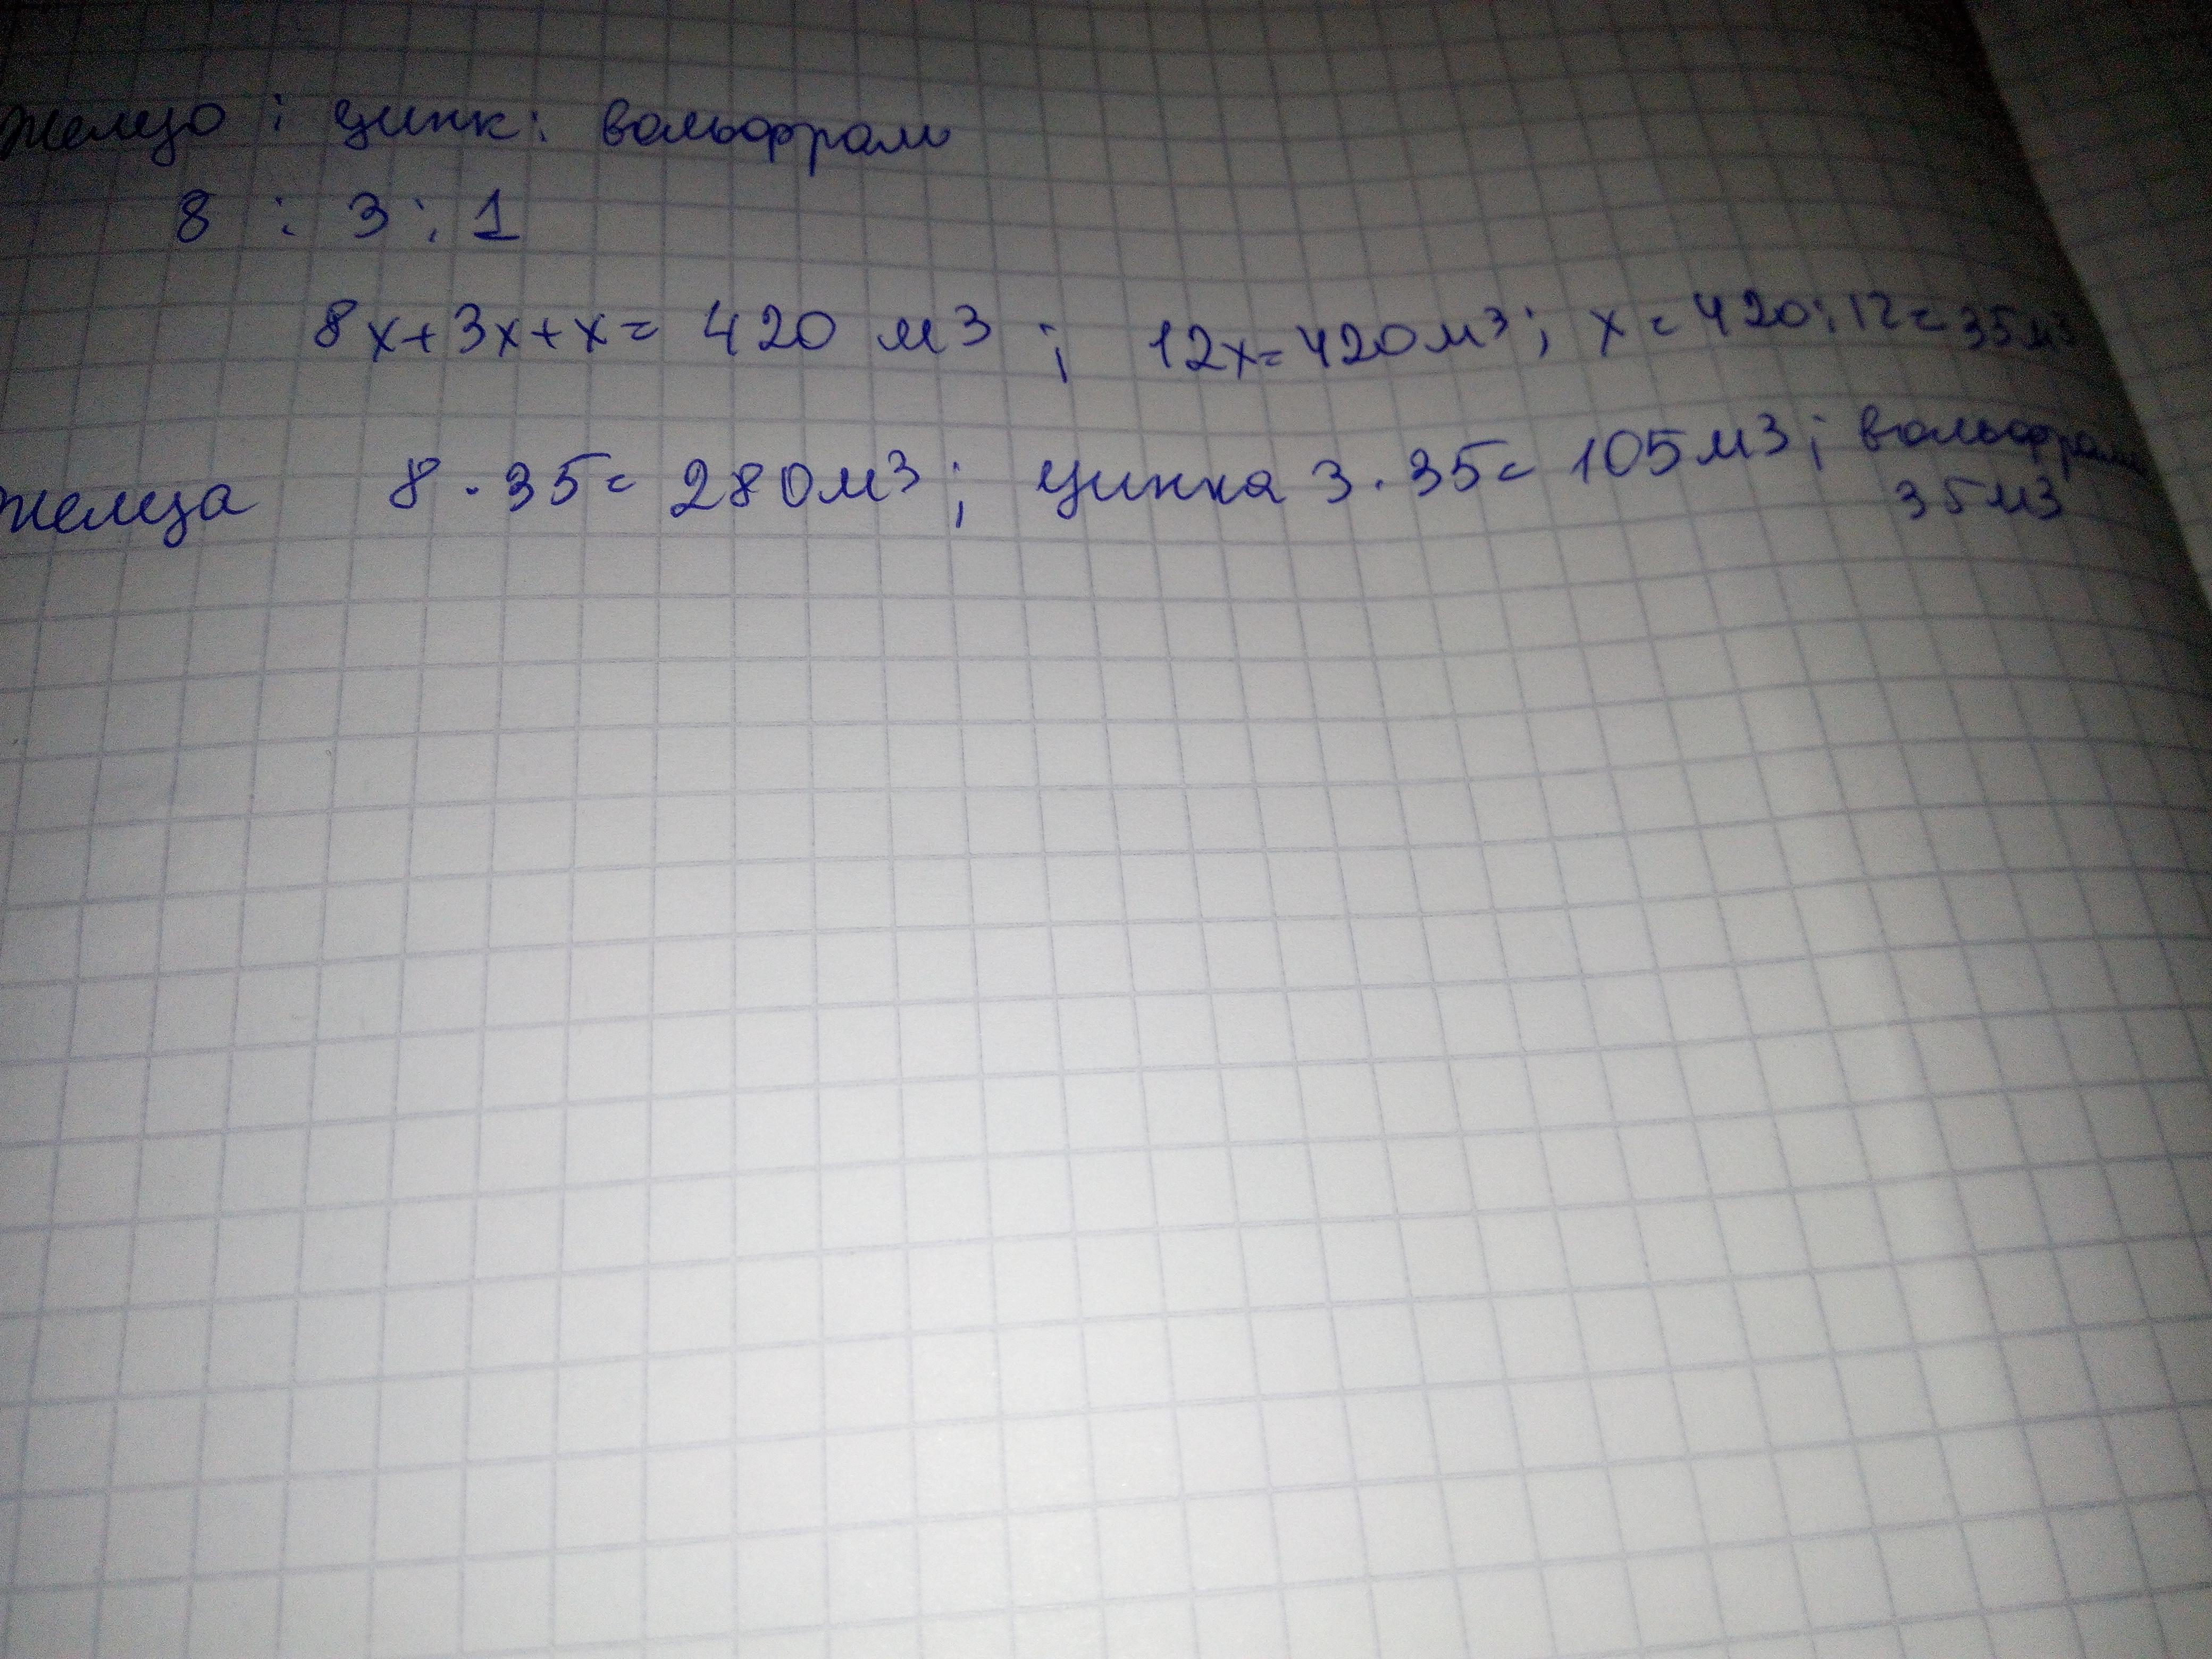 Желізо : цинк : вольфрам
8 : 3 : 1
8x+3x+x= 420 м3 ; 12x=420м³; x=420:12=35м³
Желіза 8·35= 280м3; Цинка 3·35= 105м3; вольфрама
35м3